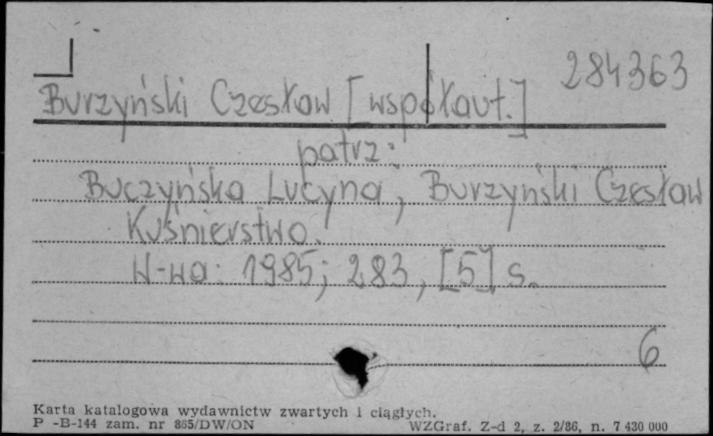 284363
Burzyński Czesław [współaut.]
patrz:
Buczyńska Lucyna, Burzyński Czesław
Kuśnierstwo.
W-wa: 1985; 283, [5] s.
6
Karta katalogowa wydawnictw zwartych i ciągłych.
P -B-144 zam. nr 865/DW/ON WZGraf. Z-d 2, z. 2/86, n. 7 430 000